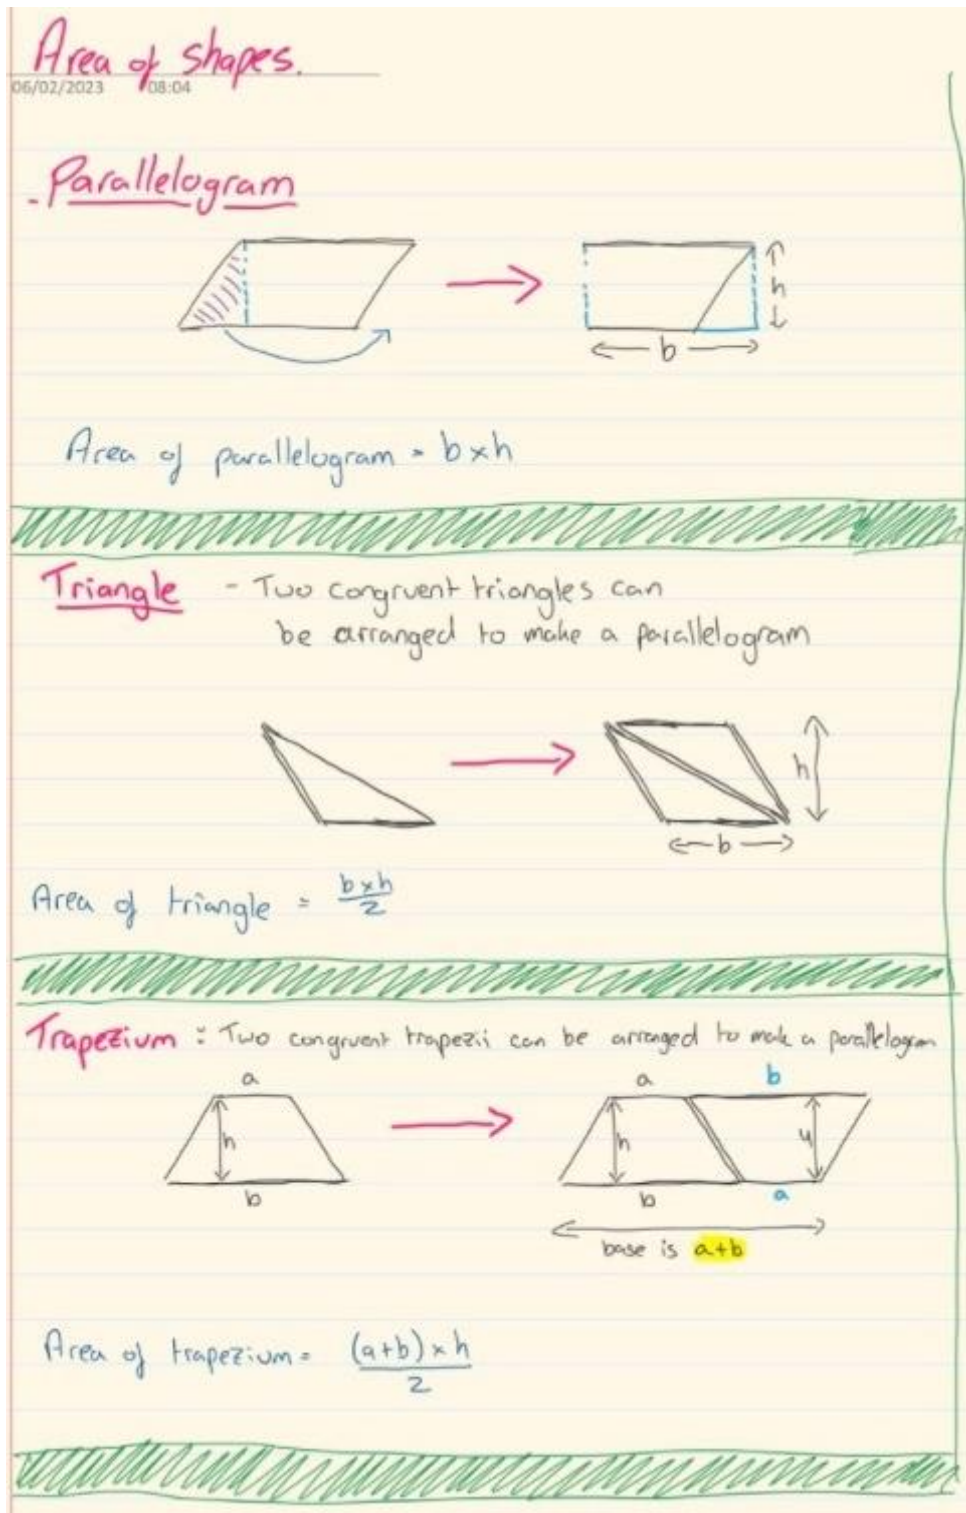 Area of shapes.
06/02/2023 08:04
- Parallelogram
h
b
Area of parallelogram = b×h
Triangle - Two congruent triangles can
be arranged to make a parallelogram
h
b
Area of triangle = b×h
2
Trapezium : Two congruent trapezii can be arranged to make a parallelogram
a a b
h h h
b b a
base is a+b
Area of trapezium = (a+b) × h
2